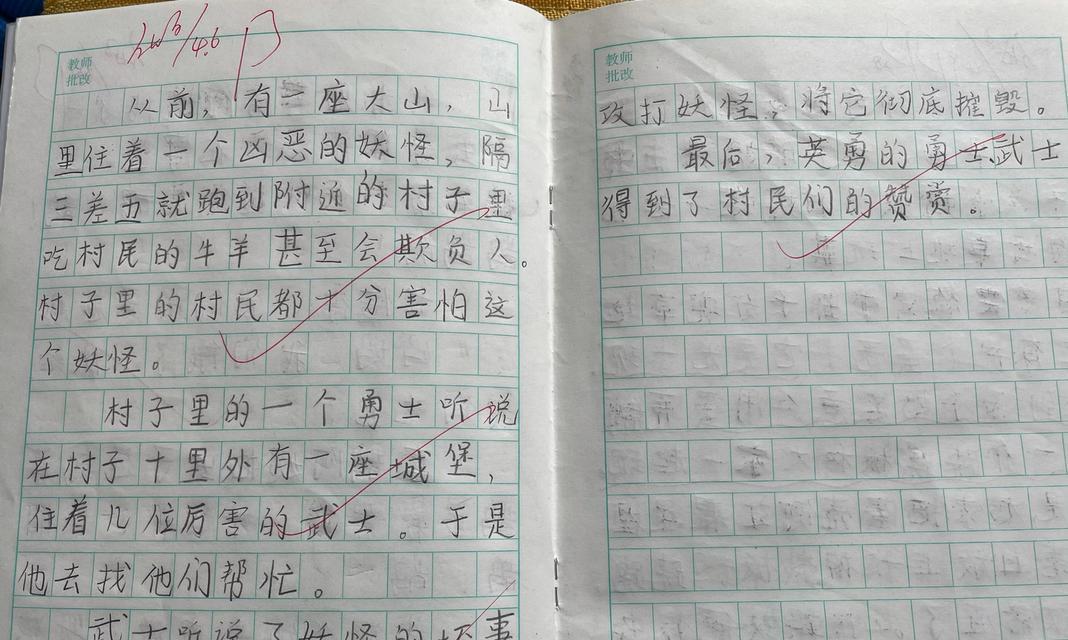 教师
批改
从前，有一座大山，山
里住着一个凶恶的妖怪，隔
三差五就跑到附近的村子里
吃村民的牛羊甚至会欺负人。
村子里的村民都十分害怕这
个妖怪。
村子里的一个勇士听说
在村子十里外有一座城堡，
住着几位厉害的武士。于是
他去找他们帮忙。
武士听说了妖怪的坏事
教师
批改
攻打妖怪，将它彻底摧毁。
最后，英勇的勇士、武士
得到了村民们的赞赏。